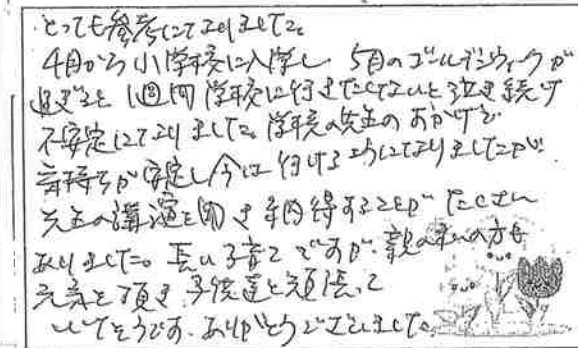 とっても参考になりました。
4月から小学校に入学し、5月のゴールデンウィークが
過ぎると1週間学校に行きたくないと泣き続け
不安定になりました。学校の先生のおかげで
気持ちが安定し今は行けるようになりましたが、
先生の講演を聞き納得することがたくさん
ありました。長い子育てですが、親の私の方も
元気を頂き子供達と頑張って
いけそうです。ありがとうございました。